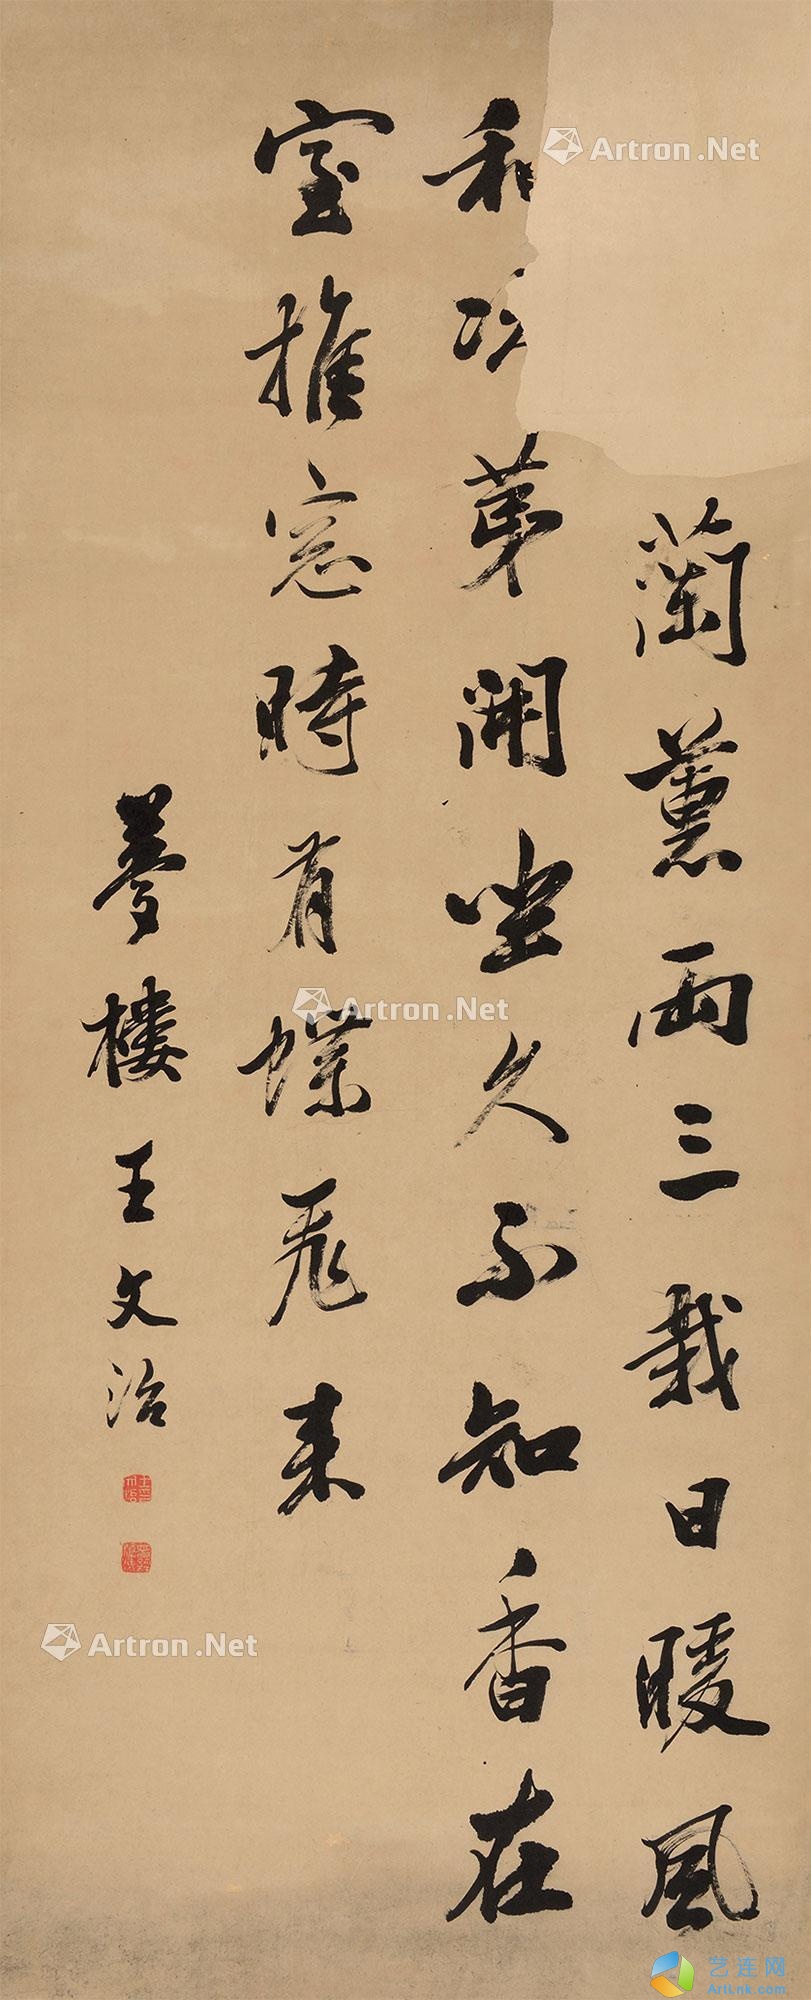 蘭蕙兩三栽日暖風
和次苐開坐久不知香在
室推窓時有蝶飛来
夢樓王文治
Artron.Net
Artron.Net
Artron.Net
艺连网
ArtLnk.com